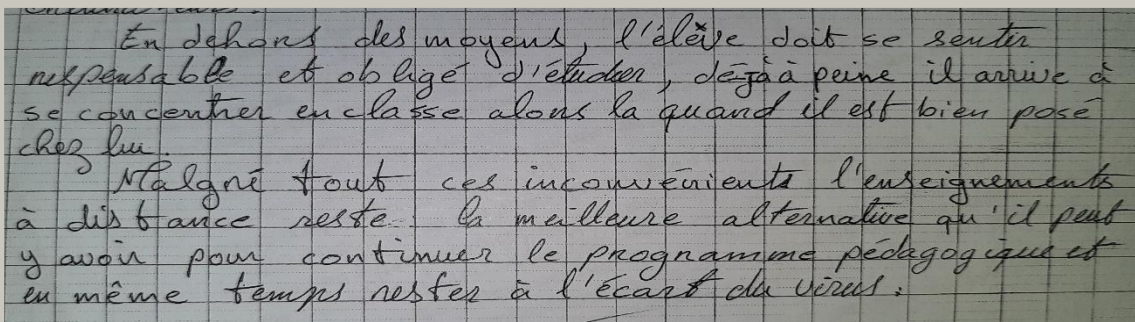 En dehors des moyens, l'élève doit se sentir
responsable et obligé d'étudier, déjà à peine il arrive à
se concentrer en classe alors la quand il est bien posé
chez lui.
Malgré tout ces inconvénients l'enseignements
à distance reste la meilleure alternative qu'il peut
y avoir pour continuer le programme pédagogique et
en même temps rester à l'écart du virus.